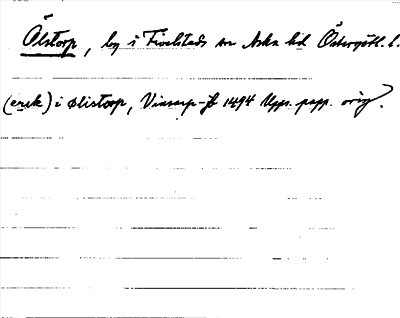 Ölstorp, by i Fivelstads sn Aska hd Östergötl. l.
(erik) i ølistorp, Vinsarp-jb 1494 Upps. papp. orig.